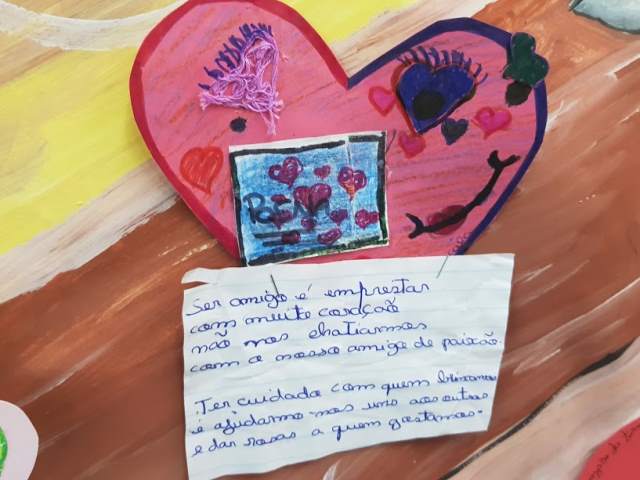 POEMA
Ser amigo é emprestar
com muito coração
não nos chatiarmos
com o nosso amigo de paixão.
Ter cuidado com quem brincamos
é ajudarmo-nos uns aos outros
e dar rosas a quem gostamos.